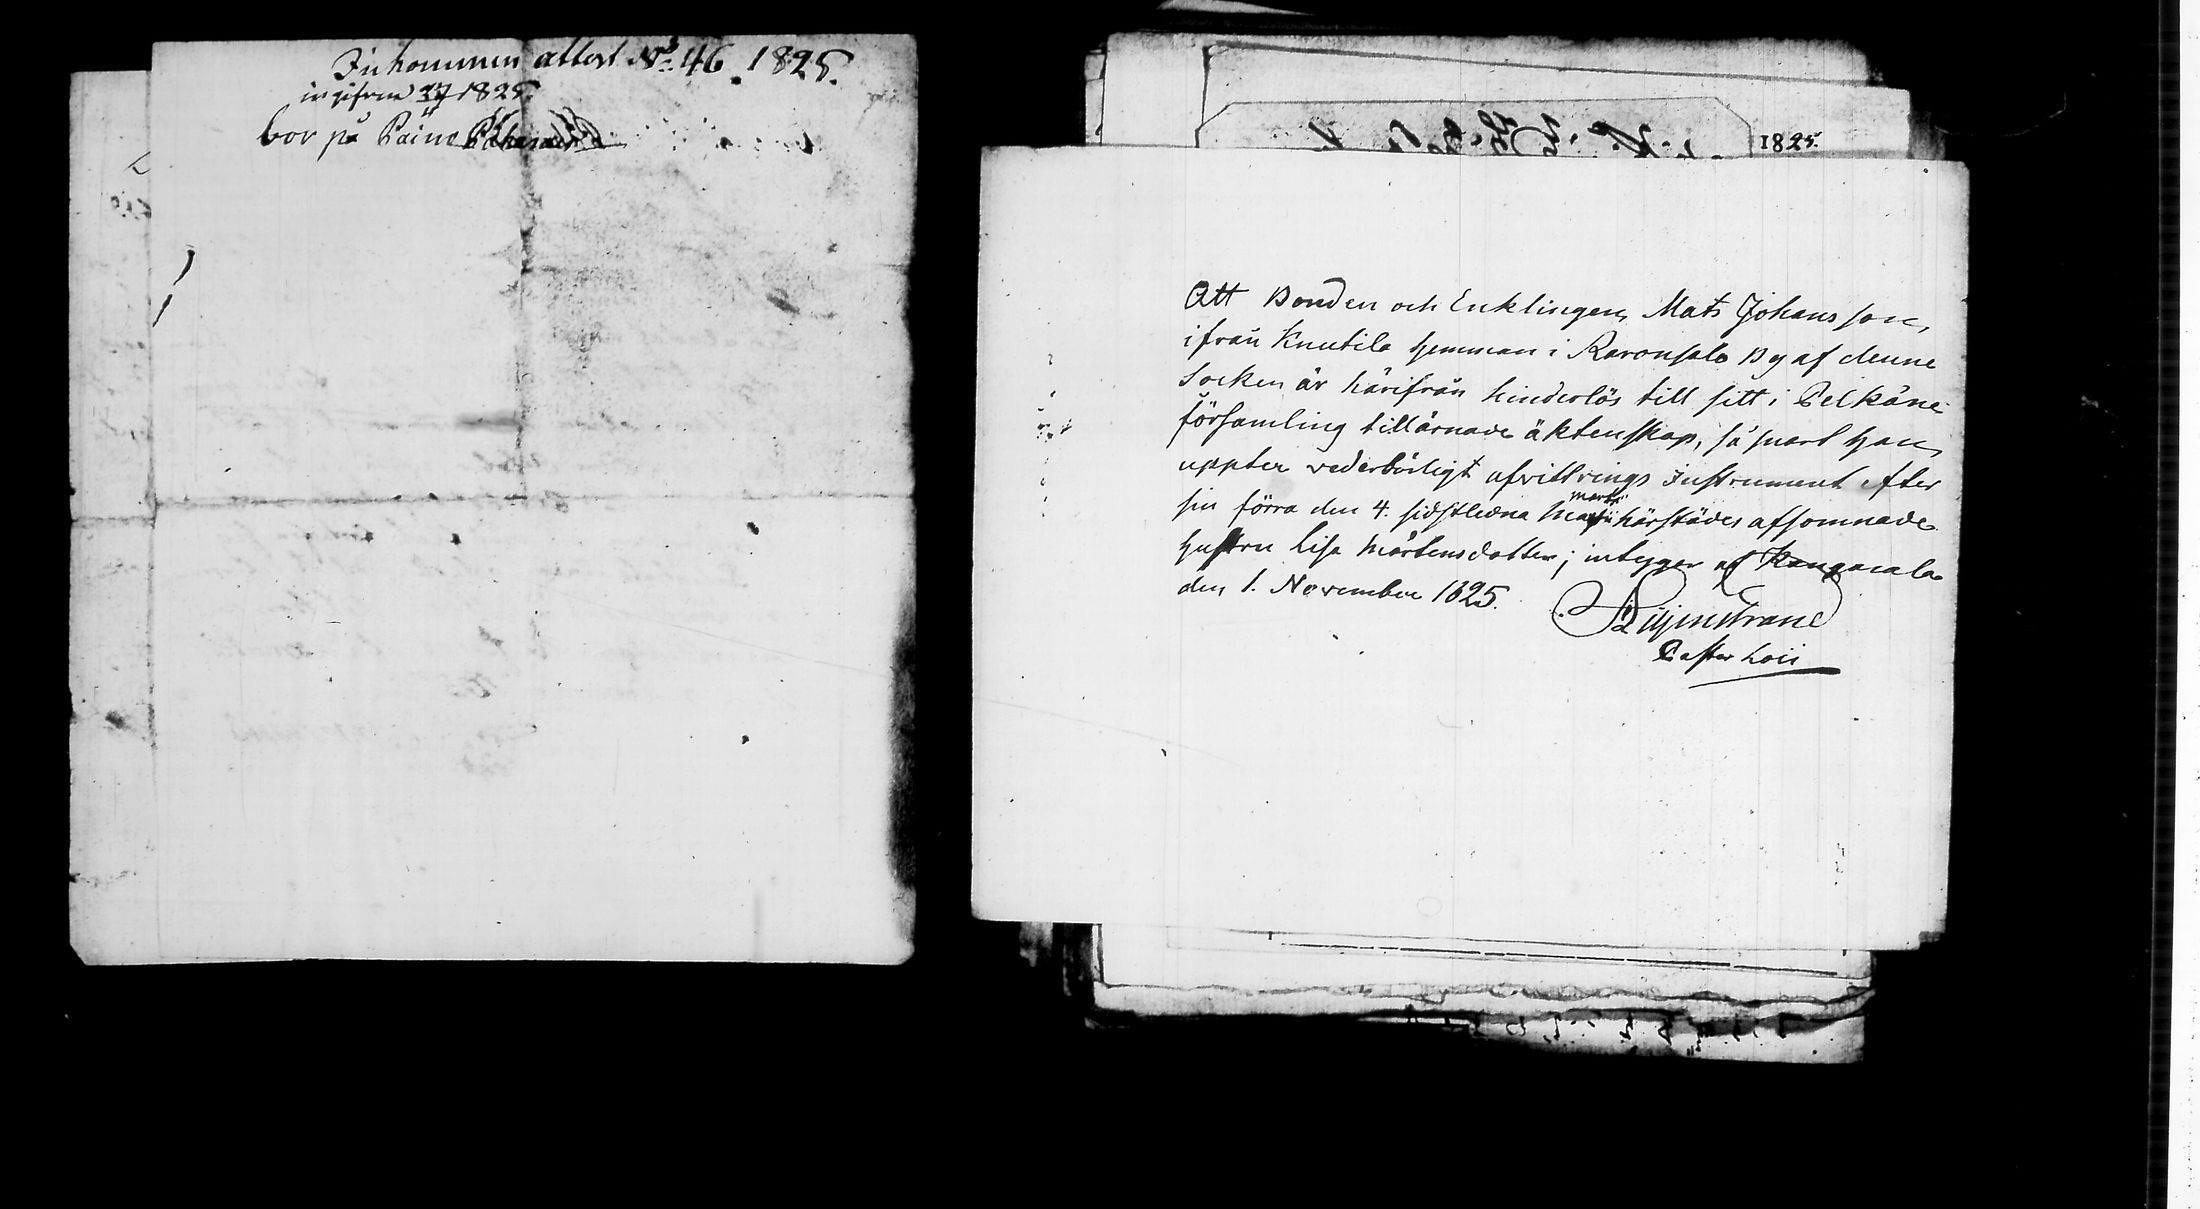 Inkommen attest No 46. 1825.
ingifven 1825.
bor på Paino
1825.
Att Bonden och Enklingen Mats Johansson,
ifrån Knutila hemman i Raronsalo By af denne
Socken är härifrån hinderlös till sitt i Pelkäne
församling tillärnade äktenskap, så snart han
uppter vederbörligt afvittrings Instrument efter
sin förra den 4. sidstledna Martii härstädes afsomnade
hustru Lisa Mårtensdotter; intygar af Kangasala
den 1. November 1825.
Pastor Loci